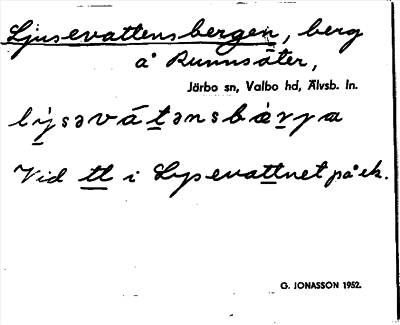 Ljusevattensbergen, berg
å Runnsäter,
Järbo sn, Valbo hd, Älvsb. ln.
lýsəvátənsbæ̀rγa
Vid tt i Lysevattnet på ek.
G. JONASSON 1952.